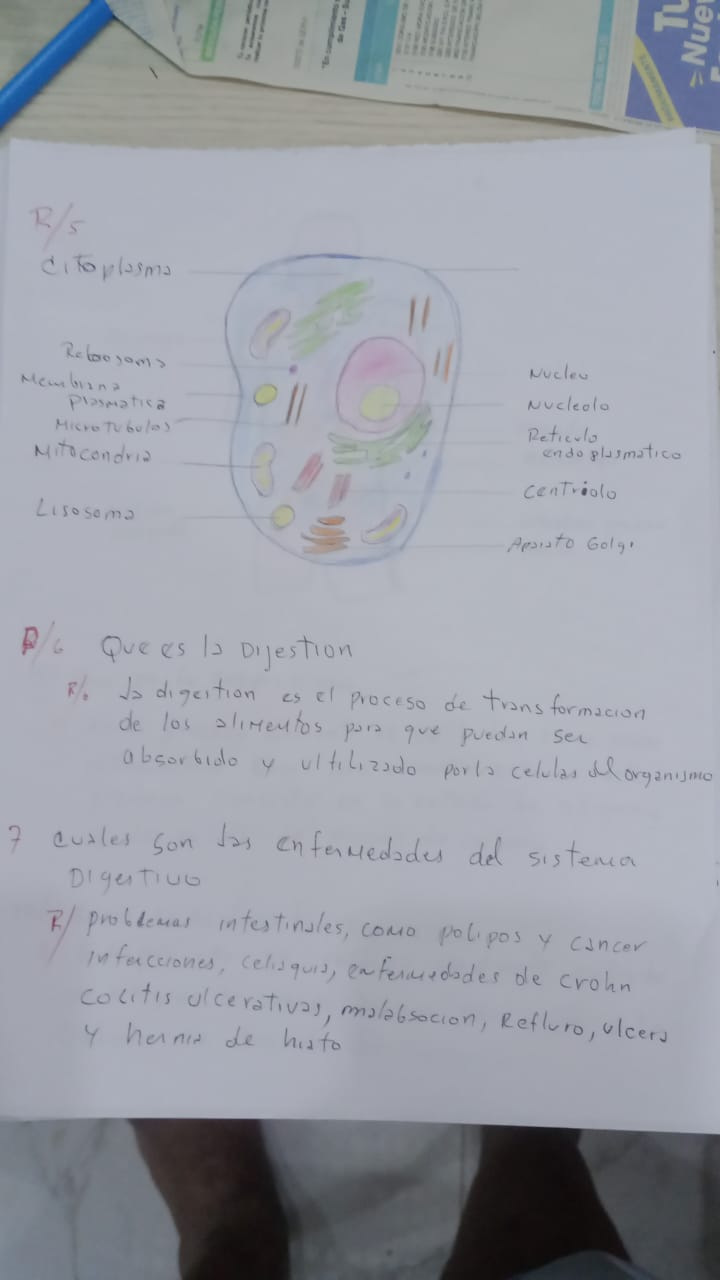 Tu
Nuev
de Gas - Su
R/5
Citoplasma
Reboosoma
Membrana
Plasmatica
Microtubulos
Mitocondria
Lisosoma
Nucleo
Nucleolo
Reticulo
endoplasmatico
Centriolo
Aparato Golgi
R/6 Que es la Dijestion
R/. La digestion es el proceso de transformacion
de los alimentos para que puedan ser
absorbido y ultilizado por la celulas del organismo
7 cuales son las enfermedades del sistema
Digestivo
R/ problemas intestinales, como polipos y cancer
infecciones, celiaquia, enfermedades de crohn
colitis ulcerativas, malabsocion, Refluro, ulcera
y hernia de hiato